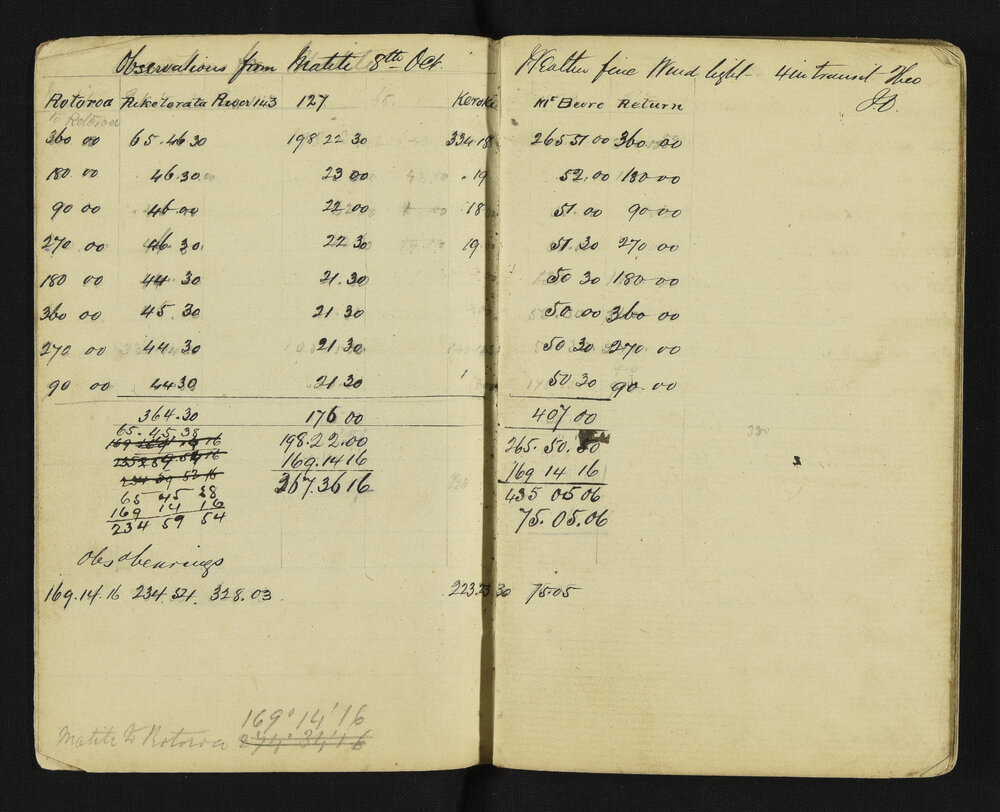 Observations from Matiti 8th Oct. Weather fine Wind light 4 in transit Theo
Rotoroa 127 Mt Beere Return
to Rotoroa
360 00 65.46 30 198.22 30 334.18 265 51 00 360 00
180 00 46.30 23 00 .19 52.00 180 00
90 00 46 00 22 00 .18 51.00 90 00
270 00 46 30 22 30 19 51.30 270 00
180 00 44 30 21.30 50 30 180 00
360 00 45.30 21 30 50 00 360 00
270 00 44 30 21.30 50 30 270 00
90 00 44 30 21.30 50 30 90.00
364.30 176 00 407 00
65.45 38 198.22.00 265.50.50
169.14 16 169 14 16
65 45 38 367.36 16 435 05 06
169 14 16 75.05.06
234 59 54
Obsd bearings
169.14.16 234.54. 328.03 223.23 30 75.05
169° 14' 16
Matiti to Rotoroa